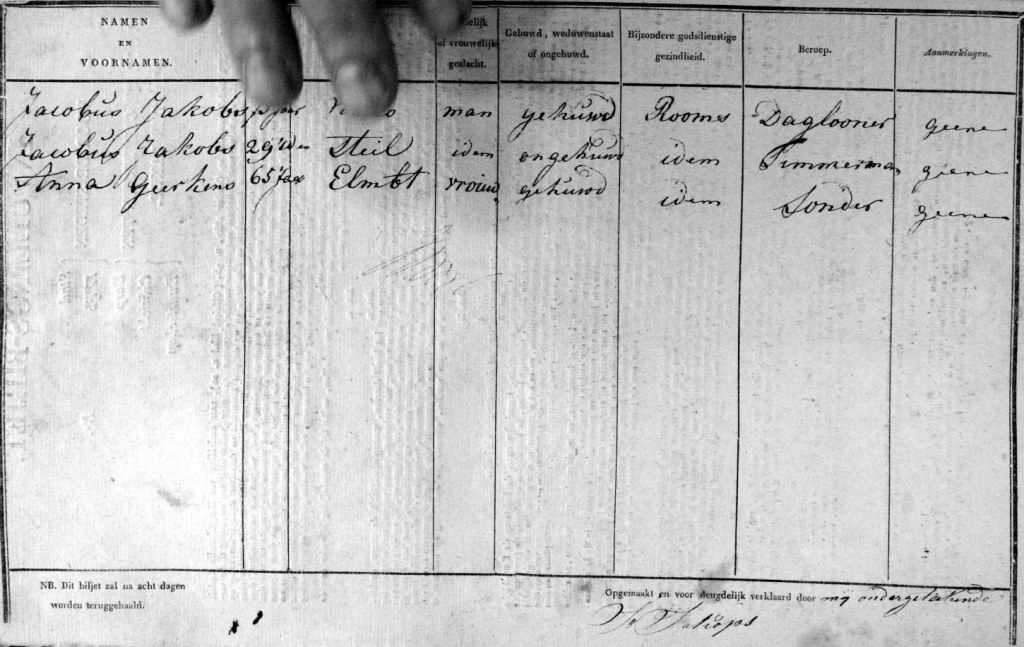 NAMEN
EN
VOORNAMEN.
of vrouwelijk
geslacht.
Gehuwd, weduwenstaat
of ongehuwd.
Bijzondere godsdienstige
gezindheid.
Beroep.
Aanmerkingen.
Jacobus Jakobs man gehuwd Rooms Daglooner geene
Jacobus Jakobs 29 Steil idem ongehuwd idem Timmerman geene
Anna Geerkens 65 Jar Elmbt vrouw gehuwd idem Sonder geene
NB. Dit biljet zal na acht dagen
worden teruggehaald.
Opgemaakt en voor deugdelijk verklaard door mij ondergetekende